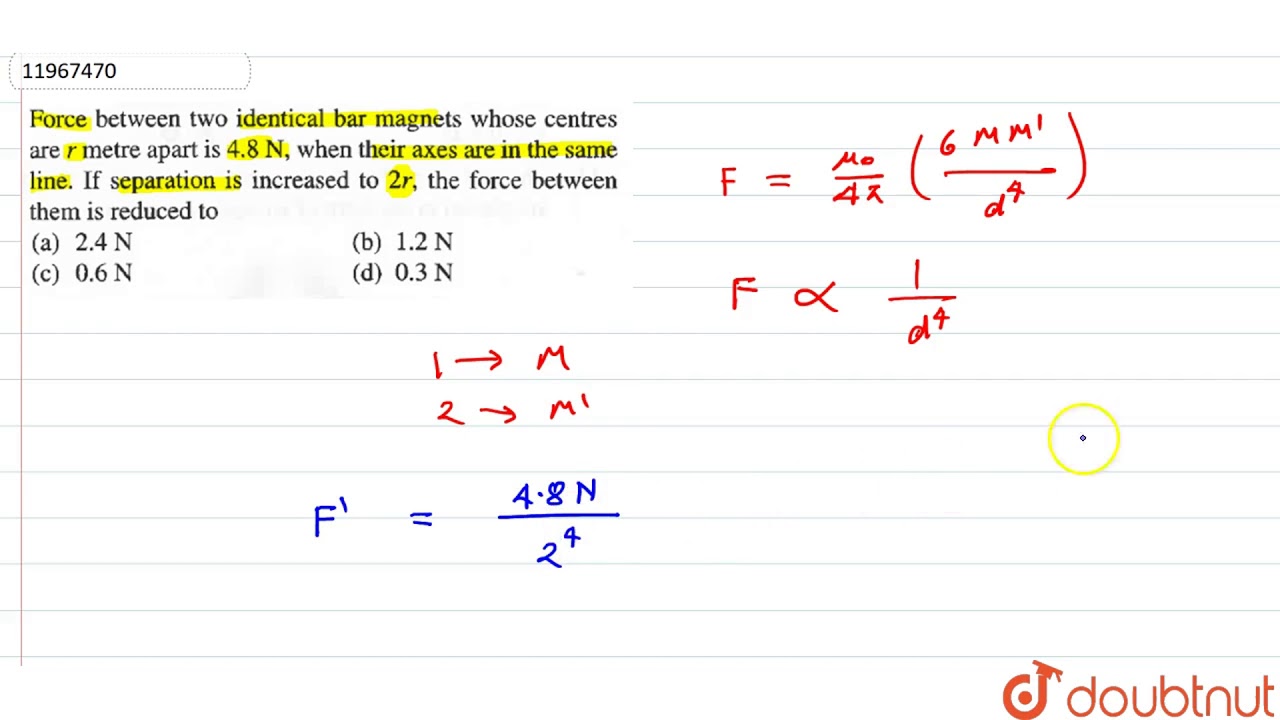 11967470
Force between two identical bar magnets whose centres
are r metre apart is 4.8 N, when their axes are in the same
line. If separation is increased to 2r, the force between
them is reduced to
(a) 2.4 N (b) 1.2 N
(c) 0.6 N (d) 0.3 N
F = μ₀/4π (6 M M'/d⁴)
F ∝ 1/d⁴
1 → M
2 → M'
F' = 4.8 N/2⁴
doubtnut